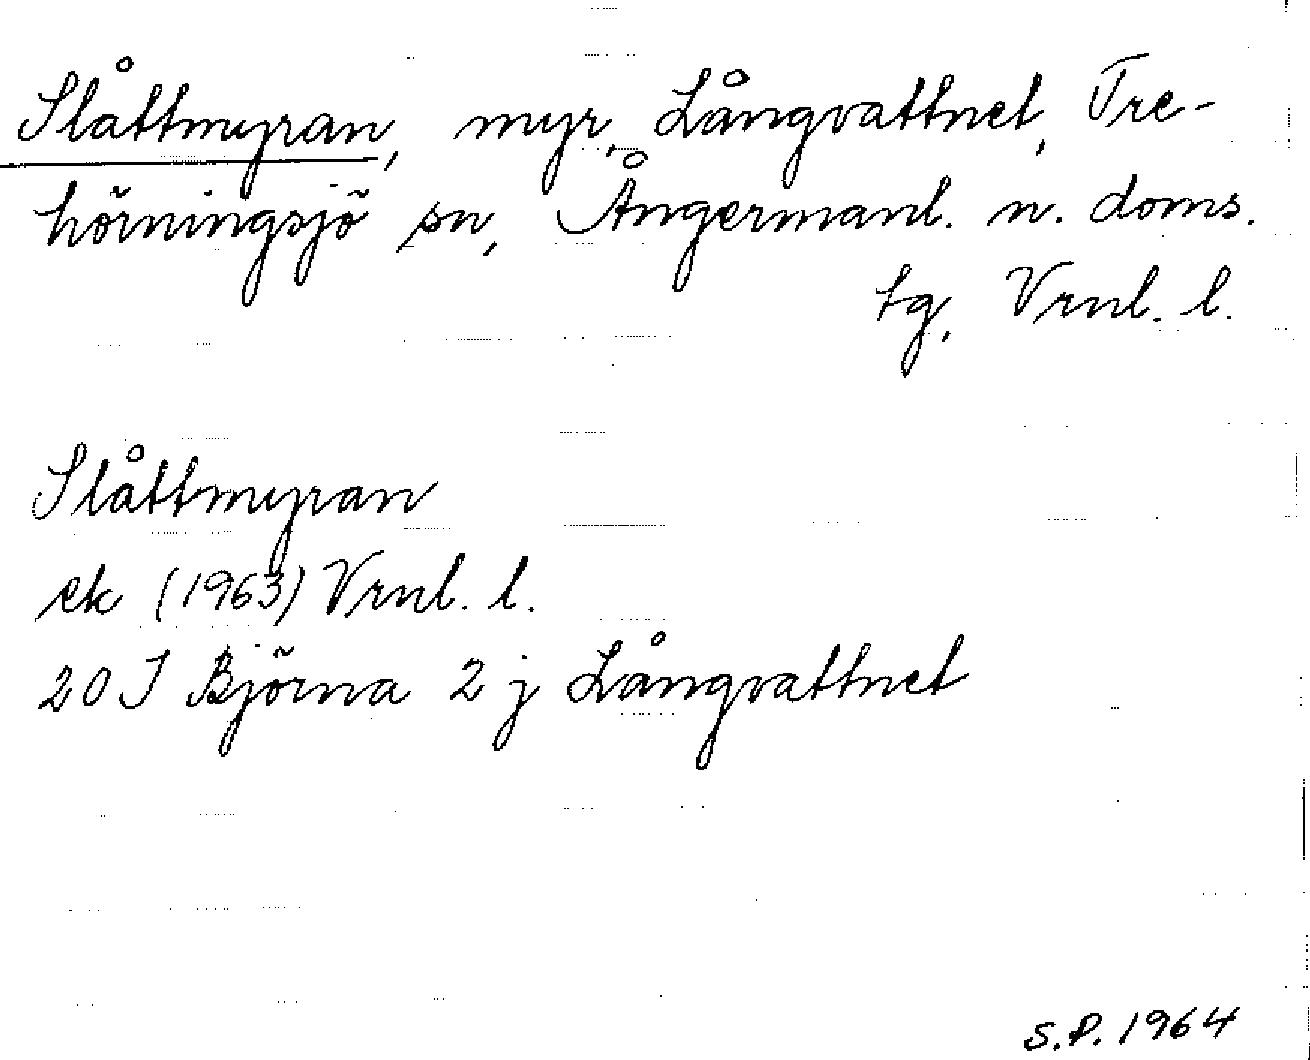 Slåttmyran, myr, Långvattnet, Tre-
hörningsjö sn, Ångermanl. n. doms.
tg, Vrnl. l.
Slåttmyran
ek (1963) Vrnl. l.
20 I Björna 2 j Långvattnet
S.P. 1964